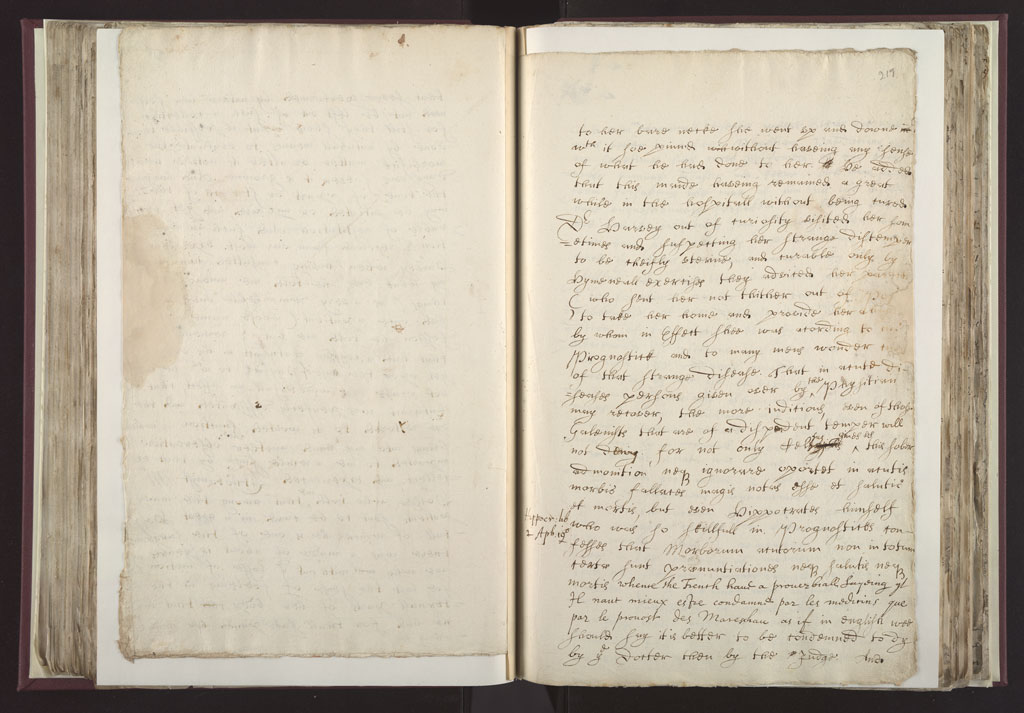 219
to her bare necke shee went up and downe
wth it soe pinned without haveing any sense
of what he had done to her he added
that this maide haveing remained a great
while in the hospitall without being cured
Dr Harvey out of curiosity visited her som
=etimes and suspecting her strange distemper
to be cheifly uterine, and curable only by
Hymeneall exercises they advised her
(who sent her not thither out of
to take her home and provide her a
by whom in effect shee was acording to
Prognostick and to many mens wonder
of that strange disease. That in acute di-
=seases persons given over by the Physitian
may recover, the more iuditious even of those
Galenists that are of a dispondent temper will
not deny for not only Celsus gives us this sober
admonition neq ignorare oportet in acutis
morbis fallaces magis notas esse et salutis
et mortis, but even Hippocrates himself
who was so skillfull in Prognosticks con
Hippocr. lib
2 Aph. 19
fesses that Morborum acutorum non in totum
certæ sunt prænuntiationes neq salutis neq
mortis whence the French haue a proverbiall Sayeing yt
Il vaut mieux estre condamne par les medicins que
par le prouost des Mareshau as if in english wee
should say it is better to be condemned to dy
by ye Docter then by the Judge And